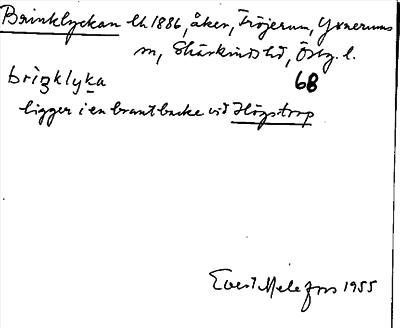 Brinklyckan lh 1886, åker, Fröjerum, Yxnerums
sn, Skärkinds hd, Östg. l.
68
briŋklyka
ligger i en brant backe vid Högstorp
Evert Melefors 1955